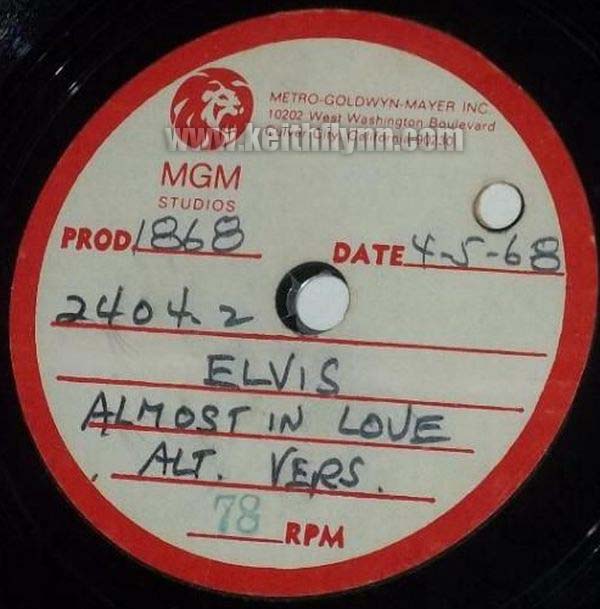 METRO-GOLDWYN-MAYER INC.
10202 West Washington Boulevard
Culver City, California 90230
www.keithflynn.com
MGM
STUDIOS
PROD. 1868
DATE 4-5-68
2404-2
ELVIS
ALMOST IN LOVE
ALT. VERS.
78 RPM